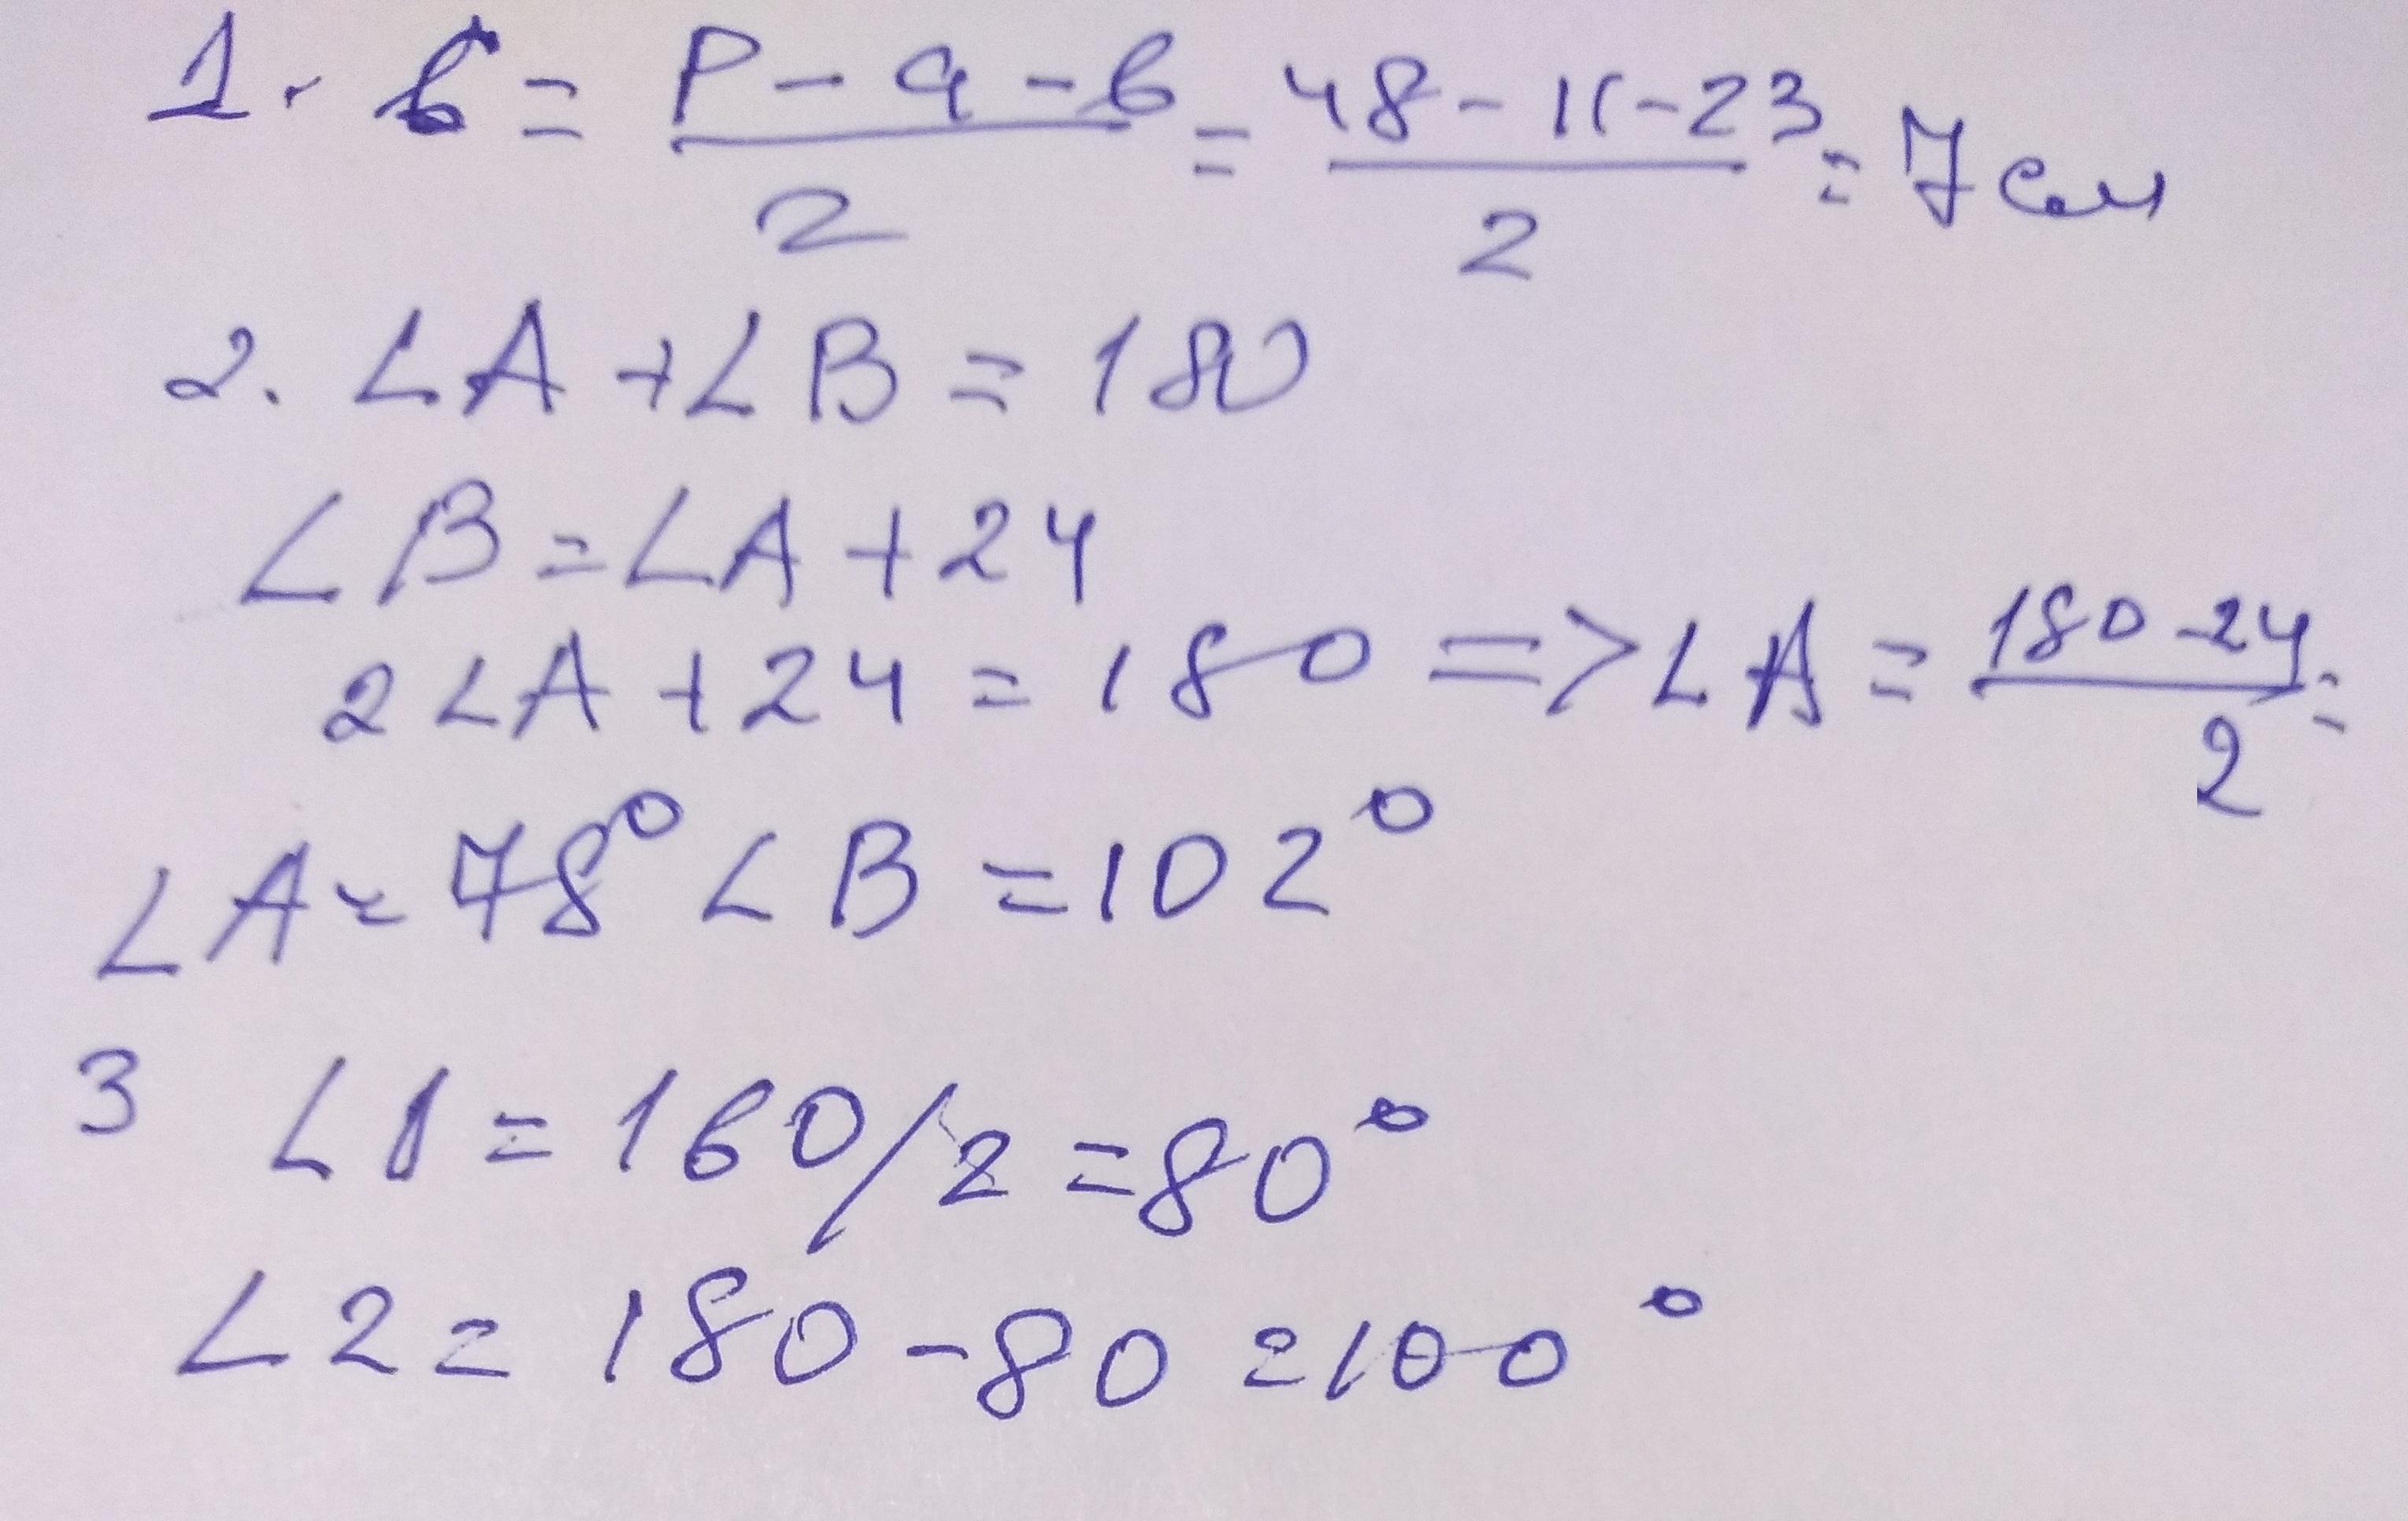 1. б = (P - a - b)/2 = (48 - 11 - 23)/2 = 7 см
2. ∠A + ∠B = 180
∠B = ∠A + 24
2∠A + 24 = 180 => ∠A = (180 - 24)/2 =
∠A = 78° ∠B = 102°
3 ∠1 = 160/2 = 80°
∠2 = 180 - 80 = 100°